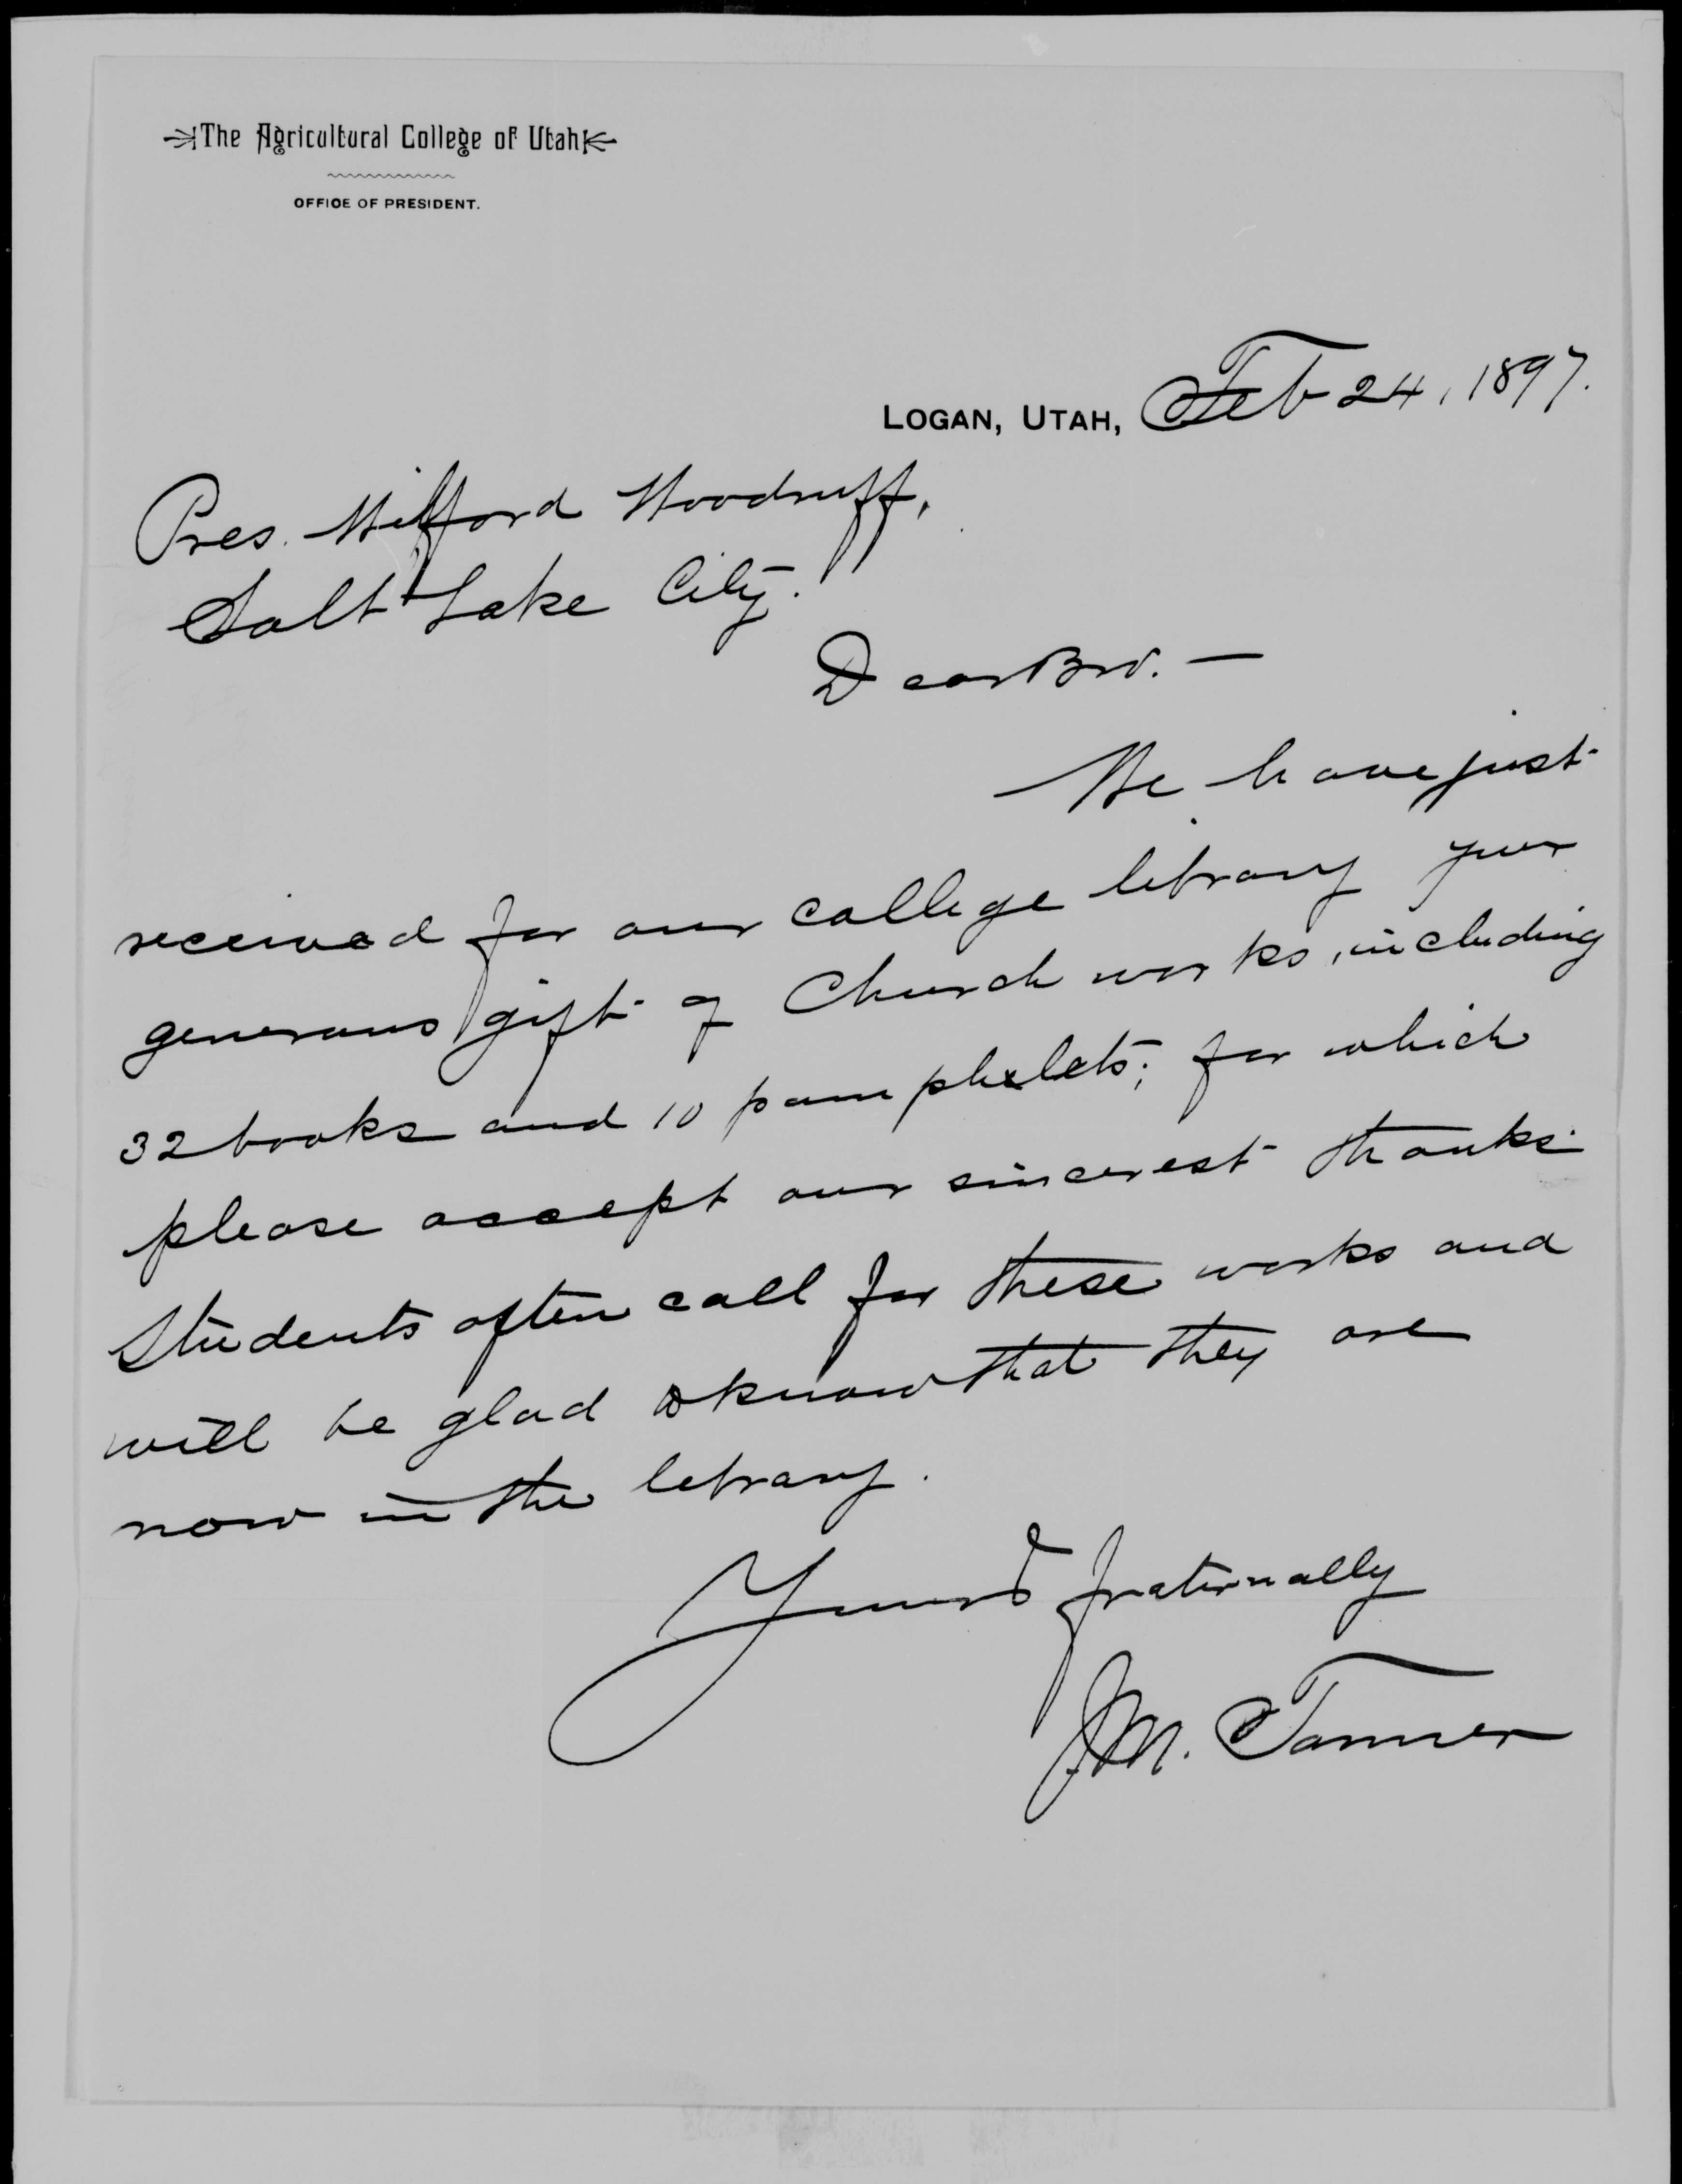 The Agricultural College of Utah
OFFICE OF PRESIDENT.
LOGAN, UTAH, Feb 24, 1897.
Pres. Wilford Woodruff,
Salt Lake City.
Dear Bro. —
We have just
received for our college library your
generous gift of Church works, including
32 books and 10 pamphlets; for which
please accept our sincerest thanks.
Students often call for these works and
will be glad to know that they are
now in the library.
Yours fraternally
J.M. Tanner